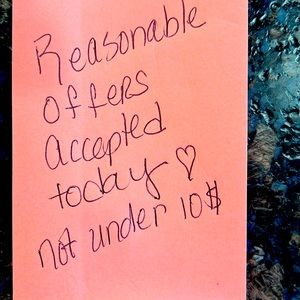 Reasonable
offers
accepted
today ♡
not under 10$